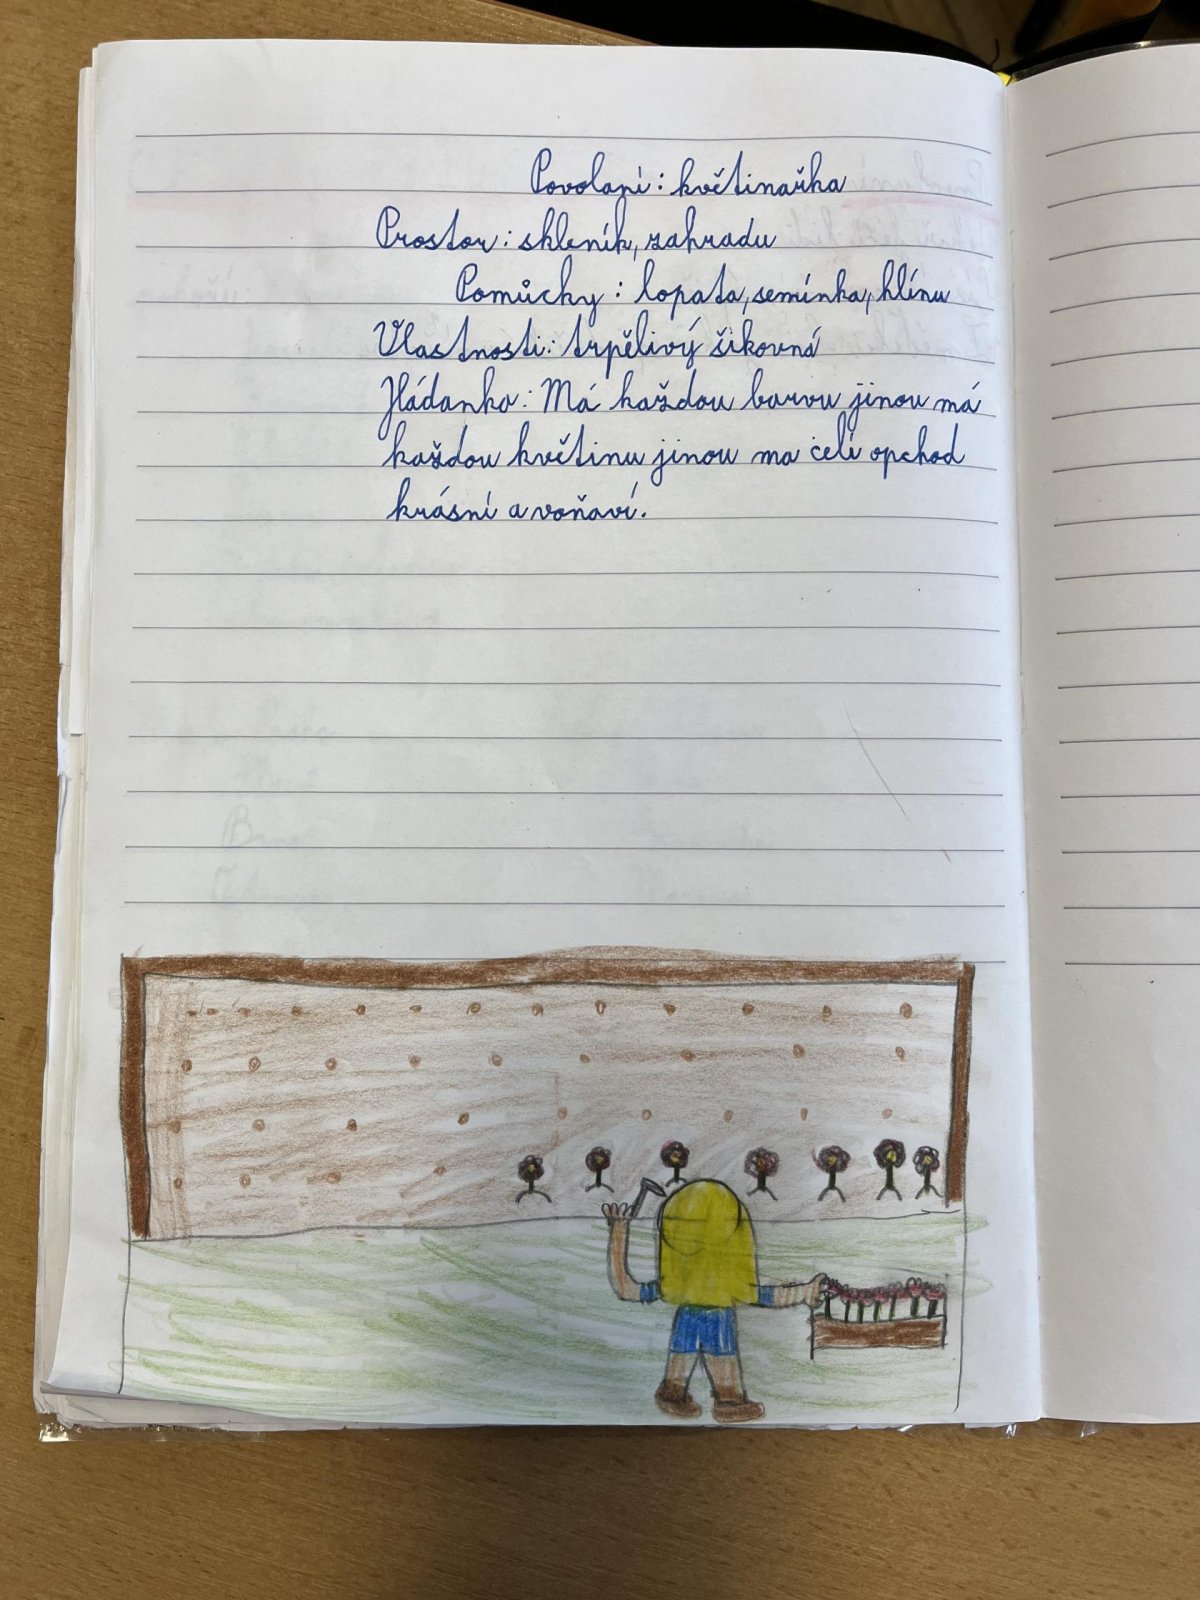 Povolaní: květinařka
Prostor: skleník, zahradu
Pomůcky: lopata, semínka, hlínu
Vlastnosti: trpělivý šikovná
Hádanka: Má každou barvu jinou má
každou květinu jinou ma celí opchod
krásní a voňaví.